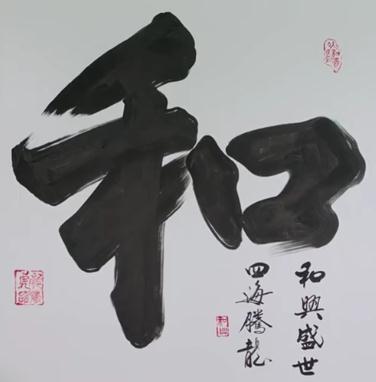 和
和興盛世
四海騰龍